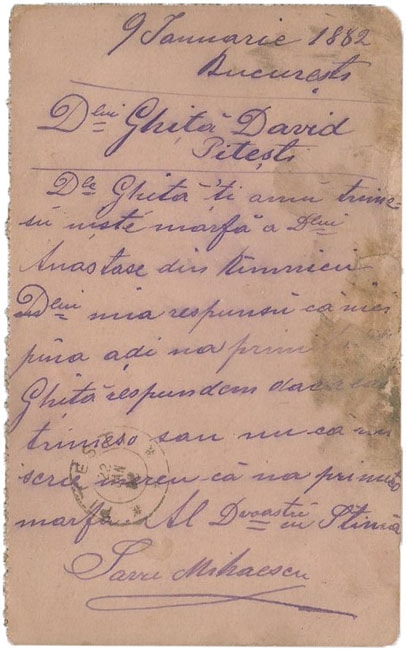 9 Ianuarie 1882
Bucuresti
Dlui Ghiță David
Pitești
Dle Ghiță 'ți amu trime-
su niște marfă a Dlui
Anastase din Rîmnicu
Dlui mia respunsu că nici
pîna adi na prim
Ghită respundem daca
trimeso sau nu că
scrie mereu că na primito
marfa Al Dvoastră cu Stimă
Savu Mihaescu